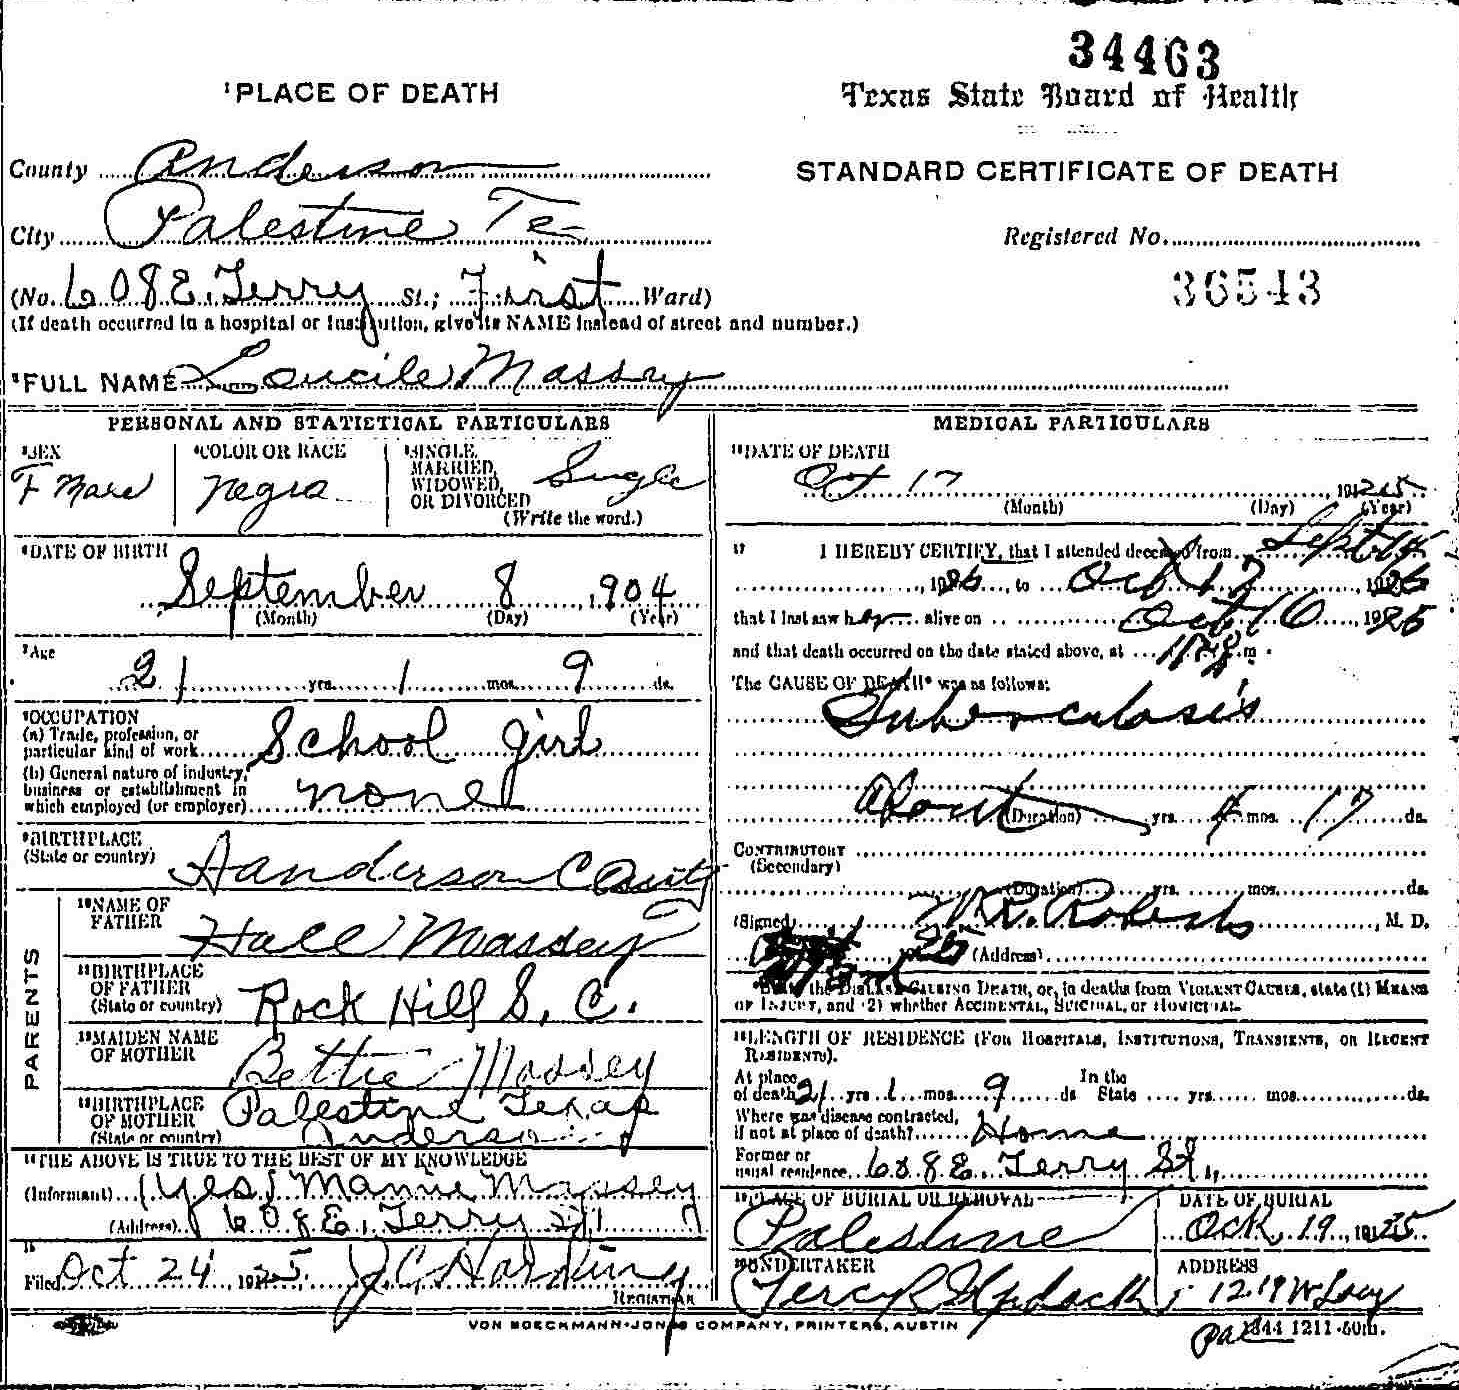 34463
¹PLACE OF DEATH
Texas State Board of Health
County Anderson
STANDARD CERTIFICATE OF DEATH
City Palestine Te
Registered No.
(No. 608 E. Terry St.; First Ward)
36543
(If death occurred in a hospital or institution, give its NAME instead of street and number.)
²FULL NAME Loucile Massey
PERSONAL AND STATISTICAL PARTICULARS
³SEX
F Male
⁴COLOR OR RACE
negro
⁵SINGLE,
MARRIED,
WIDOWED,
OR DIVORCED
(Write the word.)
Single
⁶DATE OF BIRTH
September 8, 1904
(Month) (Day) (Year)
⁷Age
21 yrs. 1 mos. 9 ds.
⁸OCCUPATION
(a) Trade, profession, or
particular kind of work School girl
(b) General nature of industry,
business or establishment in
which employed (or employer) none
⁹BIRTHPLACE
(State or country) Handerson County
PARENTS
¹⁰NAME OF
FATHER Hall Massey
¹¹BIRTHPLACE
OF FATHER
(State or country) Rock Hill S. C.
¹²MAIDEN NAME
OF MOTHER Bettie Massey
¹³BIRTHPLACE
OF MOTHER
(State or country) Palestine Texas
Anderson
¹⁴THE ABOVE IS TRUE TO THE BEST OF MY KNOWLEDGE
(Informant) (Yes) Mannie Massey
(Address) 608 E. Terry St
¹⁵
Filed Oct 24 1925 J C Harding
REGISTRAR
MEDICAL PARTICULARS
¹⁶DATE OF DEATH
Oct 17 1925
(Month) (Day) (Year)
¹⁷ I HEREBY CERTIFY, that I attended deceased from Sept
, 19 to Oct 17, 19
that I last saw her alive on Oct 16, 1925
and that death occurred on the date stated above, at m.
The CAUSE OF DEATH* was as follows:
Tuberculosis
About (Duration) yrs. mos. 17 ds.
CONTRIBUTORY
(Secondary)
(Duration) yrs. mos. ds.
(Signed) W.R. Roberts, M. D.
19 (Address)
State the DISEASE CAUSING DEATH, or, in deaths from VIOLENT CAUSES, state (1) MEANS
OF INJURY, and (2) whether ACCIDENTAL, SUICIDAL, or HOMICIDAL.
¹⁸LENGTH OF RESIDENCE (FOR HOSPITALS, INSTITUTIONS, TRANSIENTS, OR RECENT
RESIDENTS).
At place
of death 21 yrs. 1 mos. 9 ds. In the
State yrs. mos. ds.
Where was disease contracted,
if not at place of death? Home
Former or
usual residence 608 E. Terry St.,
¹⁹PLACE OF BURIAL OR REMOVAL
Palestine
DATE OF BURIAL
Oct. 19, 1925
²⁰UNDERTAKER
ADDRESS
1219 W Lacy
Pal
VON BOECKMANN-JONES COMPANY, PRINTERS, AUSTIN
1844 1211-50m.